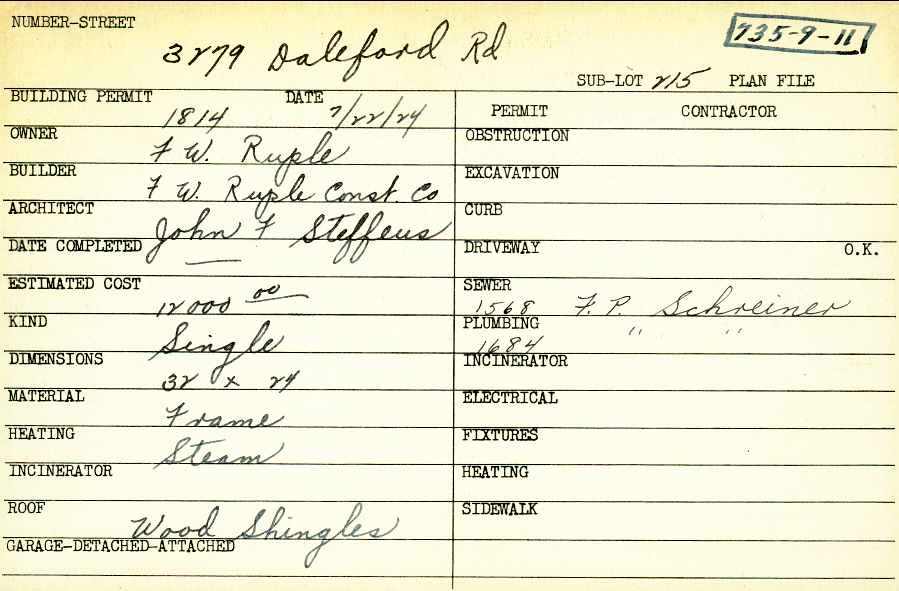 NUMBER-STREET
3279 Daleford Rd
735-9-11
SUB-LOT 215 PLAN FILE
BUILDING PERMIT 1814 DATE 7/22/24
OWNER F W. Ruple
BUILDER F W. Ruple Const. Co
ARCHITECT John F Steffens
DATE COMPLETED —
ESTIMATED COST 12000 00
KIND Single
DIMENSIONS 32 x 24
MATERIAL Frame
HEATING Steam
INCINERATOR
ROOF Wood Shingles
GARAGE-DETACHED-ATTACHED
PERMIT CONTRACTOR
OBSTRUCTION
EXCAVATION
CURB
DRIVEWAY O.K.
SEWER
1568 F. P. Schreiner
PLUMBING " "
1684
INCINERATOR
ELECTRICAL
FIXTURES
HEATING
SIDEWALK